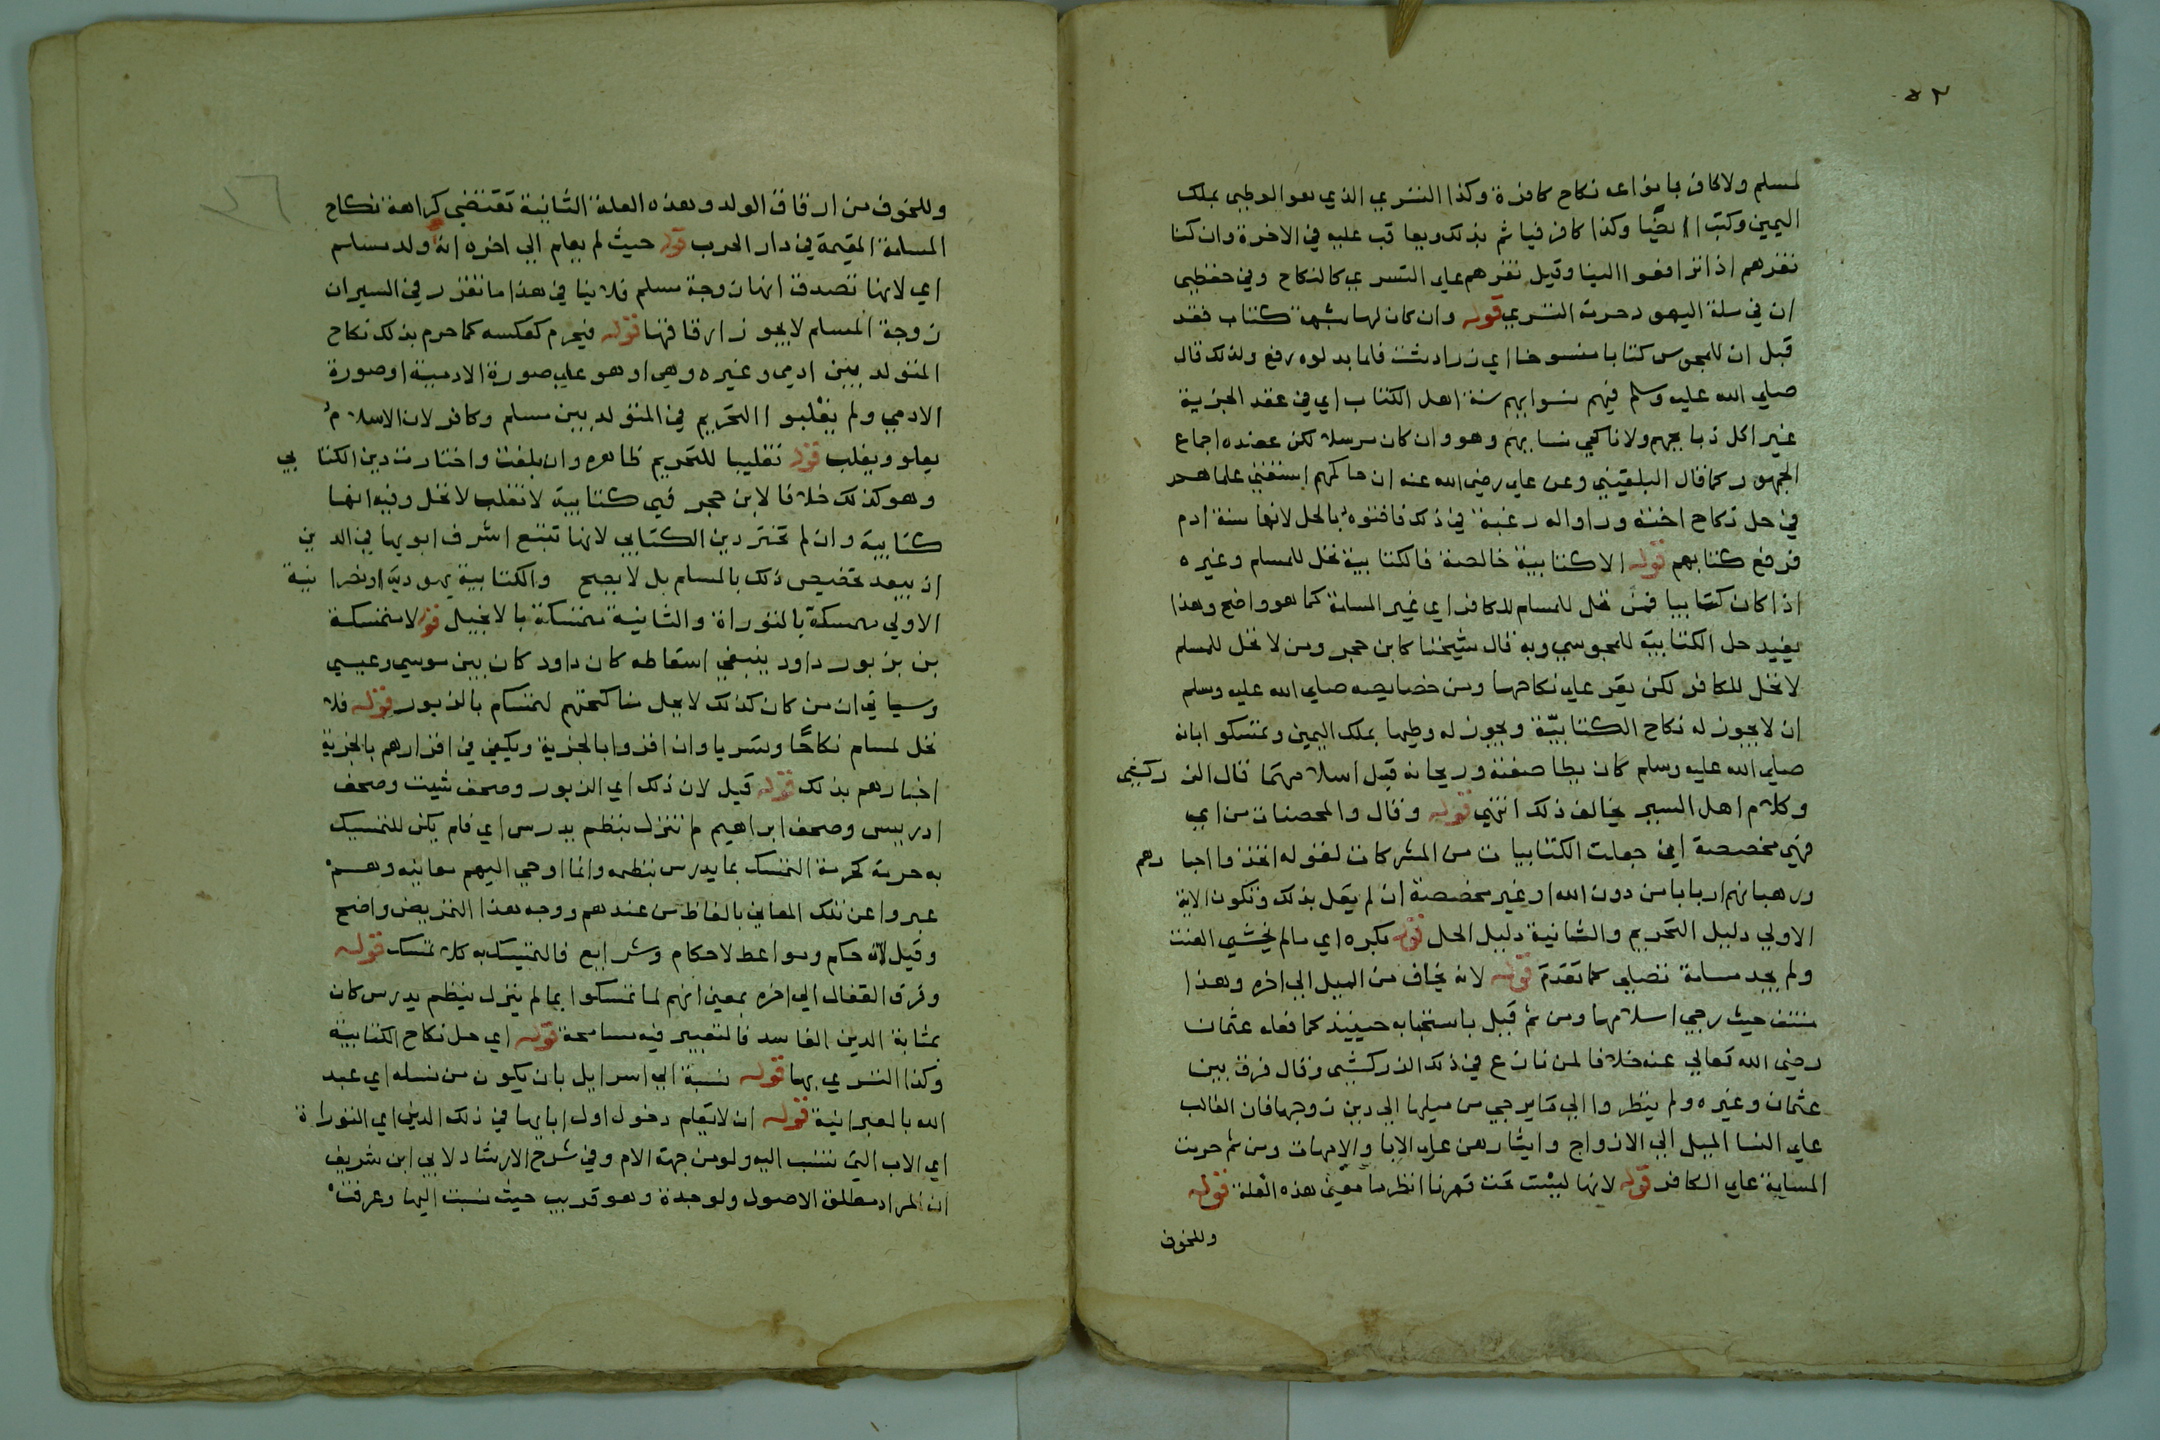 ٥٢
لمسلم ولا كافر بانواعه نكاح كافرة وكذا التسري الذي هو الوطي بملك
اليمين وكتب ايضًا وكذا كافر فياثم بذلك ويعاقب عليه في الاخرة وان كنا
نقرهم اذا ترافعوا الينا وقيل نقرهم علي التسري كالنكاح وفي حفظي
ان في ملة اليهود حرمة التسري قوله وان كان لها شبهة كتاب فقد
قيل ان للمجوس كتابا منسوخا اي زرادشت فلما بدلوه رفع ولذلك قال
صلي الله عليه وسلم فيهم سنوا بهم سنة اهل الكتاب اي في عقد الجزية
غير اكل ذبايحهم ولا ناكحي نسايهم وهو وان كان مرسلا لكن عضده اجماع
الجمهور كما قال البلقيني وعن علي رضي الله عنه ان حاكمهم استفتي علماهم
في حل نكاح اخته وراوا له رغبة في ذلك فافتوه بالحل لانها سنة ادم
فرفع كتابهم قوله الا كتابية خالصة فالكتابية تحل للمسلم وغيره
اذا كان كتابيا فمن تحل للمسلم للكافر اي غير المسلمة كما هو واضح وهذا
يفيد حل الكتابية للمجوسي وبه قال شيخنا كابن حجر ومن لا تحل للمسلم
لا تحل للكافر لكن يقر علي نكاحها ومن خصايصه صلي الله عليه وسلم
ان لا يجوز له نكاح الكتابيّة ويجوز له وطيها بملك اليمين وتمسكوا بانه
صلي الله عليه وسلم كان يطا صفية وريحانة قبل اسلامهما قال الزركشي
وكلام اهل السير يخالف ذلك انتهي قوله وقال والمحصنات من اي
فهي مخصصة اي جعلت الكتابيات من المشركات لقوله اتخذوا احبارهم
ورهبانهم اربابا من دون الله او غير مخصصة ان لم يقل بذلك وتكون الاية
الاولي دليل التحريم والثانية دليل الحل قوله بكره اي ما لم يخشي العنت
ولم يجد مسلمة تصلي كما تقدم قوله لانه يخاف من الميل الي اخره وهذا
منتف حيث رجي اسلامها ومن ثم قيل باستحبابه حينيذ كما فعله عثمان
رضي الله تعالي عنه خلافا لمن نازع في ذلك الزركشي وقال فرق بين
عثمان وغيره ولم ينظروا الي ما يرجي من ميلها الي دين زوجها فان الغالب
علي النسا الميل الي الازواج وايثارهن علي الابا والامهات ومن ثم حرمت
المسلمة علي الكافر قوله لانها ليست تحت قهرنا انظر ما معني هذه العلة قوله
وللخوف
وللخوف من ارقاق الولد وهذه العلة الثانية تقتضي كراهة نكاح
المسلمة المقيمة في دار الحرب قوله حيث لم يعلم الي اخره انه ولد مسلم
اي لانها تصدق انها زوجة مسلم فلا ينافي هذا ما تقرر في السير ان
زوجة المسلم لا يجوز ارقاقها قوله فيحرم كعكسه كما حرم بذلك نكاح
المتولد بين ادمي وغيره وهي او هو علي صورة الادمية او صورة
الادمي ولم يغلبوا التحريم في المتولد بين مسلم وكافر لان الاسلام
يعلو ويغلب قوله تغليبا للتحريم ظاهره وان بلغت واختارت دين الكتابي
وهو كذلك خلافا لابن حجر فهي كتابية لا تغلب لا تحل وفيه انها
كتابية وان لم تختر دين الكتابي لانها تتبع اشرف ابويها في الدين
اذ يبعد تخصيص ذلك بالمسلم بل لا يصح والكتابية يهودية او نصرانية
الاولي متمسكة بالتوراة والثانية متمسكة بالانجيل قوله لا متمسكة
بن بزبور داود ينبغي اسقاطه كان داود كان بين موسي وعيسي
وسياتي ان من كان كذلك لا يحل مناكحتهم لتمسكهم بالزبور قوله فلا
تحل لمسلم نكاحًا وتسريا وان اقروا بالجزية ويكفي في اقرارهم بالجزية
اخبارهم بذلك قوله قيل لان ذلك اي الزبور وصحف شيث وصحف
ادريس وصحف ابراهيم لم تنزل بنظم يدرس اي فلم يكن للتمسك
به حرمة كحرمة التمسك بما يدرس بنظمه وانما اوحي اليهم معانيه وهم
عبروا عن تلك المعاني بالفاظ من عندهم ووجه هذا التمريض واضح
وقيل لانه حكم ومواعظ لا حكام وشرايع فالتمسك به كلا تمسك قوله
وفرق القفال الي اخره بمعني انهم لما تمسكوا بما لم ينزل بنظم يدرس كان
بمثابة الدين الفاسد فالتعبير فيه مسامحة قوله اي حل نكاح الكتابية
وكذا التسري بها قوله نسبة الي اسرايل بان يكون من نسله اي عبد
الله بالعبرانية قوله ان لا يعلم دخول اول ابايها في ذلك الدين اي التوراة
اي الاب التي تنسب اليه ولو من جهة الام وفي شرح الارشاد لابي ابن شريف
ان المراد مطلق الاصول ولو جدة وهو قريب حيث نسبت اليها وعرفت